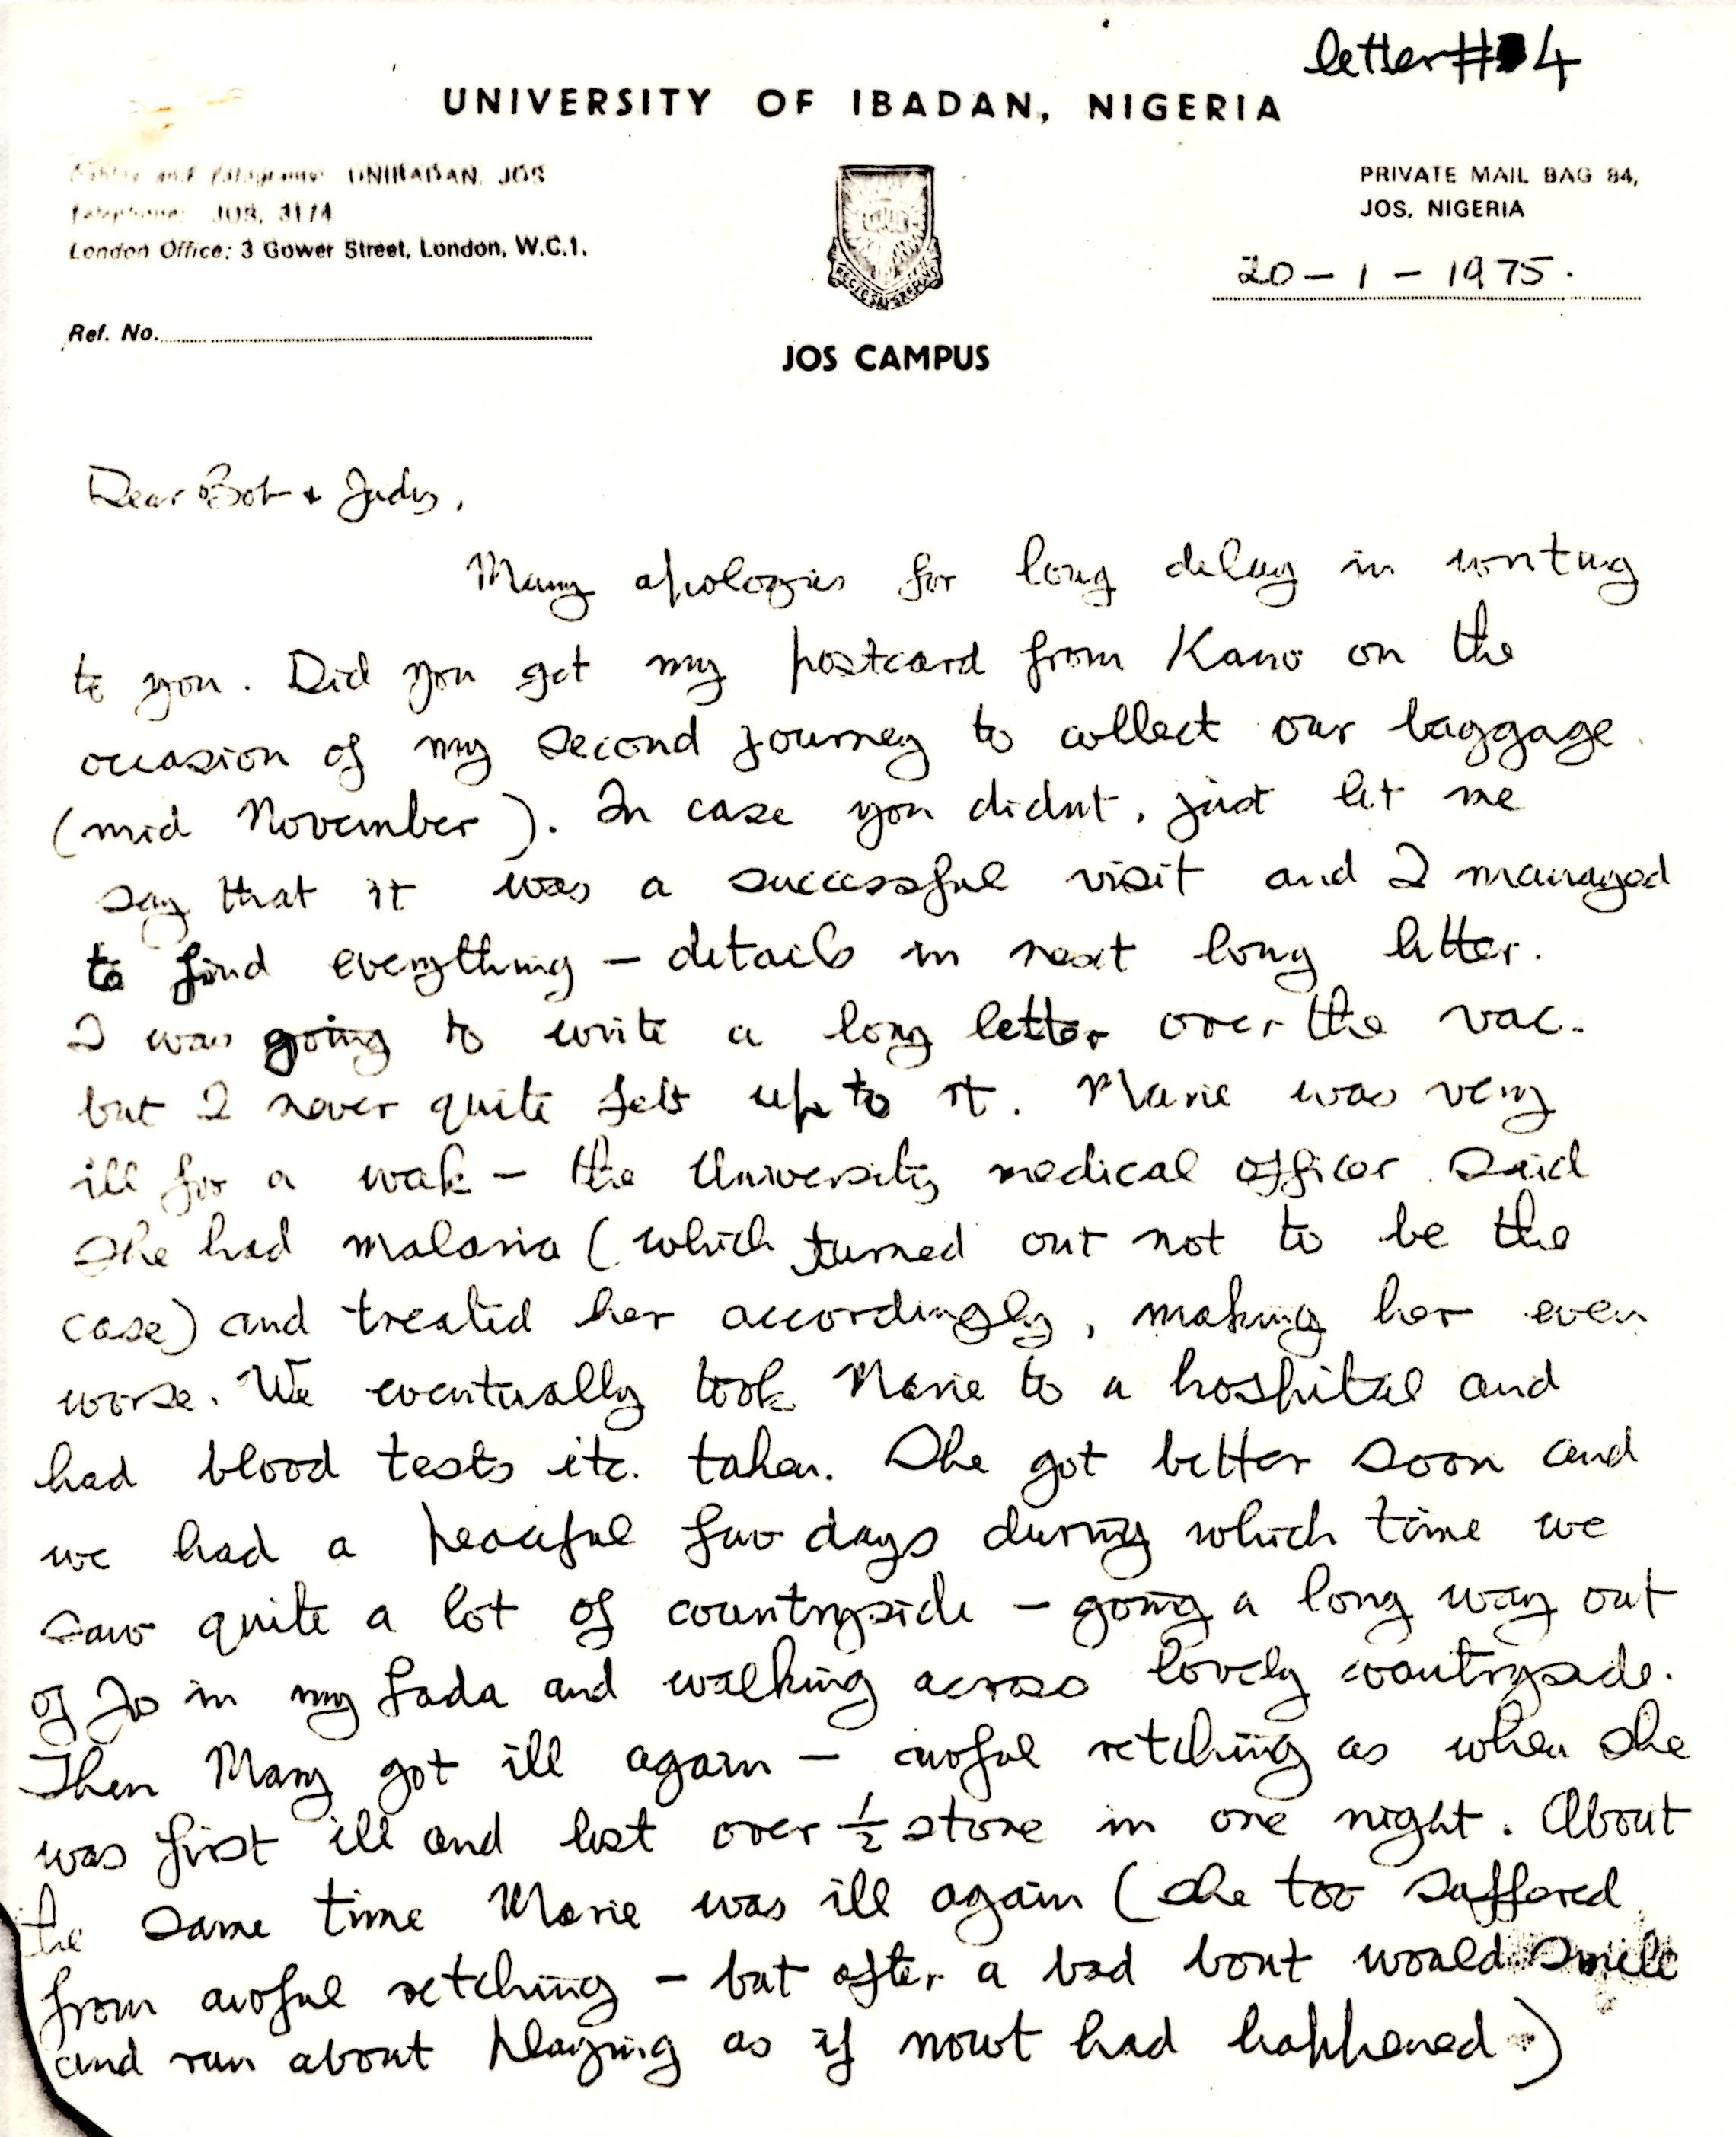 letter # 4
UNIVERSITY OF IBADAN, NIGERIA
Cables and Telegrams: UNIBADAN, JOS
Telephone: JOS, 3174
London Office: 3 Gower Street, London, W.C.1.
PRIVATE MAIL BAG 84,
JOS, NIGERIA
20 – 1 – 1975.
Ref. No.
JOS CAMPUS
Dear Bob + Judy,
Many apologies for long delay in writing
to you. Did you get my postcard from Kano on the
occasion of my second journey to collect our baggage
(mid November). In case you didnt, just let me
say that it was a successful visit and I managed
to find everything – details in next long letter.
I was going to write a long letter over the vac.
but I never quite felt up to it. Marie was very
ill for a week – the University medical officer said
she had malaria (which turned out not to be the
case) and treated her accordingly, making her even
worse. We eventually took Marie to a hospital and
had blood tests etc. taken. She got better soon and
we had a peaceful few days during which time we
saw quite a lot of countryside – going a long way out
of Jos in my Lada and walking across lovely countryside.
Then Mary got ill again – awful retching as when she
was first ill and lost over ½ stone in one night. About
the same time Marie was ill again (she too suffered
from awful retching – but after a bad bout would smile
and run about playing as if nowt had happened.)